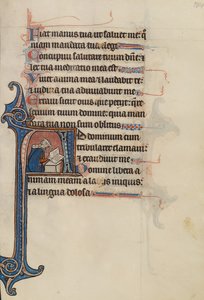 Fiat manus tua ut saluet me: q̃
niam mandata tua elegi
Concupiui salutare tuum dñe: &
lex tua meditatio mea est
Uiuet anima mea & laudabit te:
& iudicia tua adiuuabunt me
Erraui sicut ouis que perijt: quere
seruum tuum domine: quia man
data tua non sum oblitus
Ad dominum cum
tribularer clamaui:
& exaudiuit me
Domine libera a
nimam meam a labiis iniquis:
& a lingua dolosa